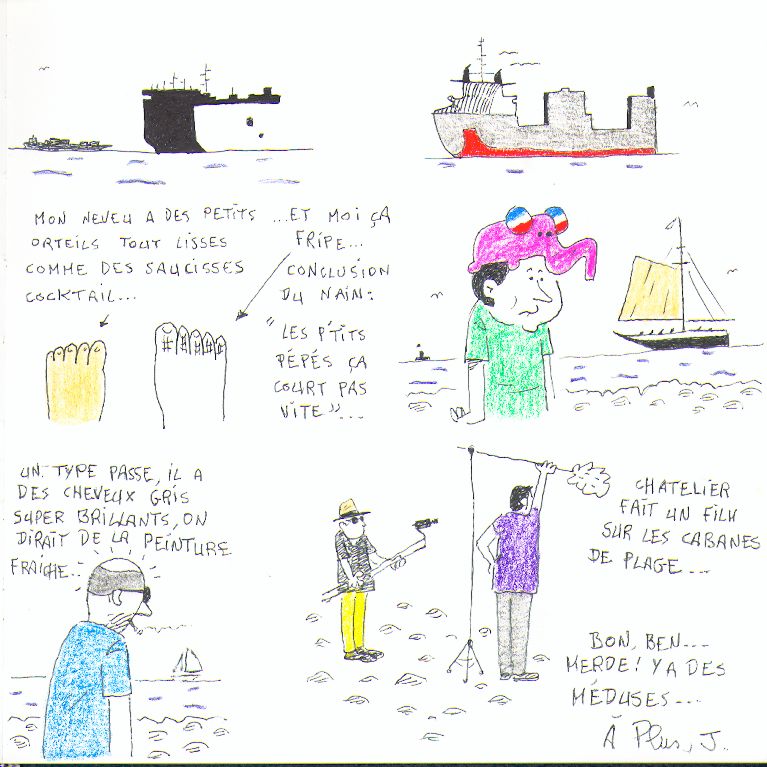 MON NEVEU A DES PETITS
ORTEILS TOUT LISSES
COMME DES SAUCISSES
COCKTAIL...
...ET MOI ÇA
FRIPE...
CONCLUSION
DU NAIN:
"LES P'TITS
PÉPÉS ÇA
COURT PAS
VITE"...
UN TYPE PASSE, IL A
DES CHEVEUX GRIS
SUPER BRILLANTS, ON
DIRAIT DE LA PEINTURE
FRAICHE...
CHATELIER
FAIT UN FILM
SUR LES CABANES
DE PLAGE...
BON, BEN...
MERDE! YA DES
MÉDUSES...
À Plus, J.